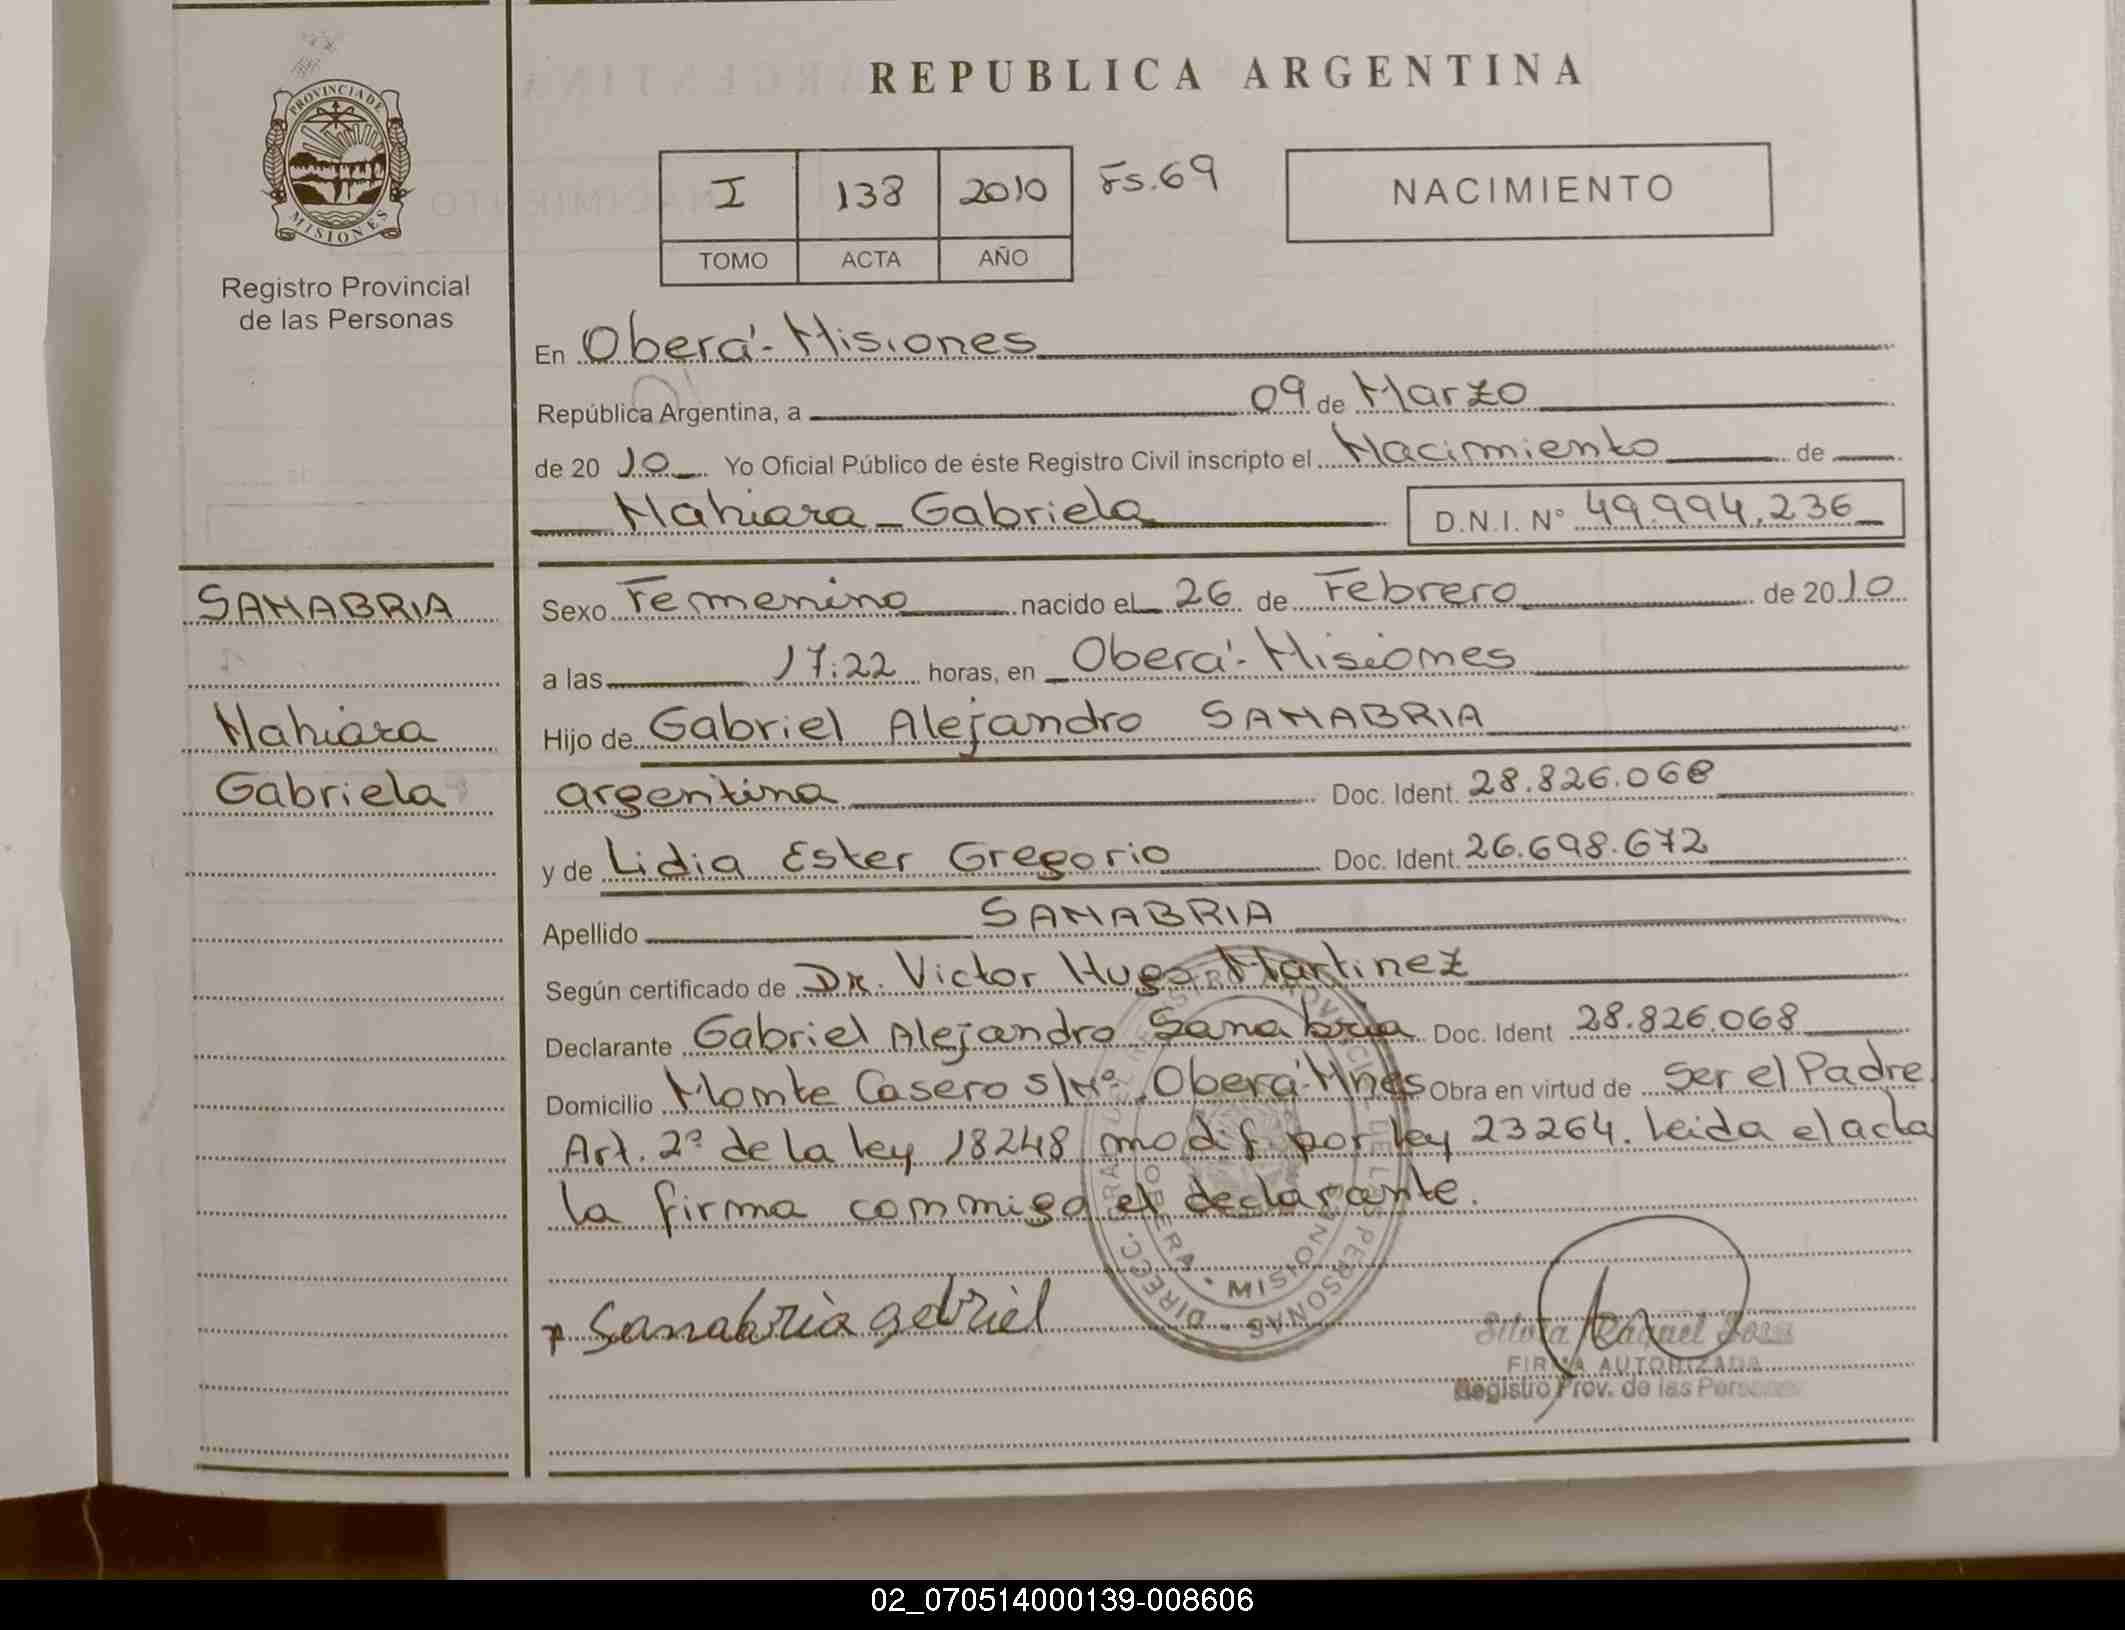 REPUBLICA ARGENTINA
PROVINCIA DE
MISIONES
Registro Provincial
de las Personas
I 138 2010 Fs.69
TOMO ACTA AÑO
NACIMIENTO
En Oberá - Misiones
República Argentina, a 09 de Marzo
de 20 10 Yo Oficial Público de éste Registro Civil inscripto el Nacimiento de
Nahiara Gabriela D.N.I. Nº 49.994.236
SANABRIA
Nahiara
Gabriela
Sexo Femenino nacido el 26 de Febrero de 2010
a las 17:22 horas, en Oberá - Misiones
Hijo de Gabriel Alejandro SANABRIA
argentina Doc. Ident. 28.826.068
y de Lidia Ester Gregorio Doc. Ident. 26.698.672
Apellido SANABRIA
Según certificado de Dr. Victor Hugo Martinez
Declarante Gabriel Alejandro Sanabria Doc. Ident 28.826.068
Domicilio Monte Casero s/Nº. Oberá - Mnes Obra en virtud de Ser el Padre
Art. 2º de la ley 18248 modif. por ley 23264. Leida el acta
la firma conmigo el declarante.
Sanabria gabriel
OBERA - MISIONES
FIRMA AUTORIZADA
Registro Prov. de las Personas
02_070514000139-008606